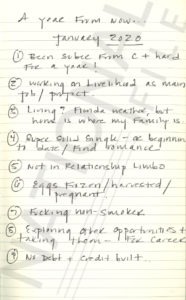 A year From Now...
January 2020
① Been Sober From C + hard
For a year!
② Working on Livelihood as main
job / project.
③ Living? Florida weather, but
home is where my Family is
④ Super Solid Single - or beginning
to date / Find Romance!
⑤ Not in Relationship Limbo
⑥ Eggs Frozen / harvested /
pregnant
⑦ Fucking non-smoker
⑧ Exploring other opportunities +
taking them - For Career
⑨ No Debt + credit built..